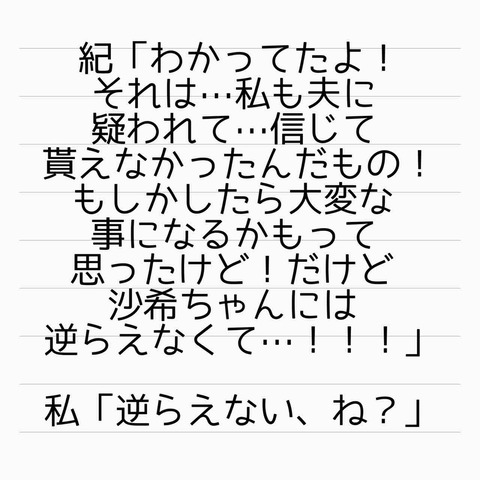 紀「わかってたよ！
それは…私も夫に
疑われて…信じて
貰えなかったんだもの！
もしかしたら大変な
事になるかもって
思ったけど！だけど
沙希ちゃんには
逆らえなくて…！！！」
私「逆らえない、ね？」